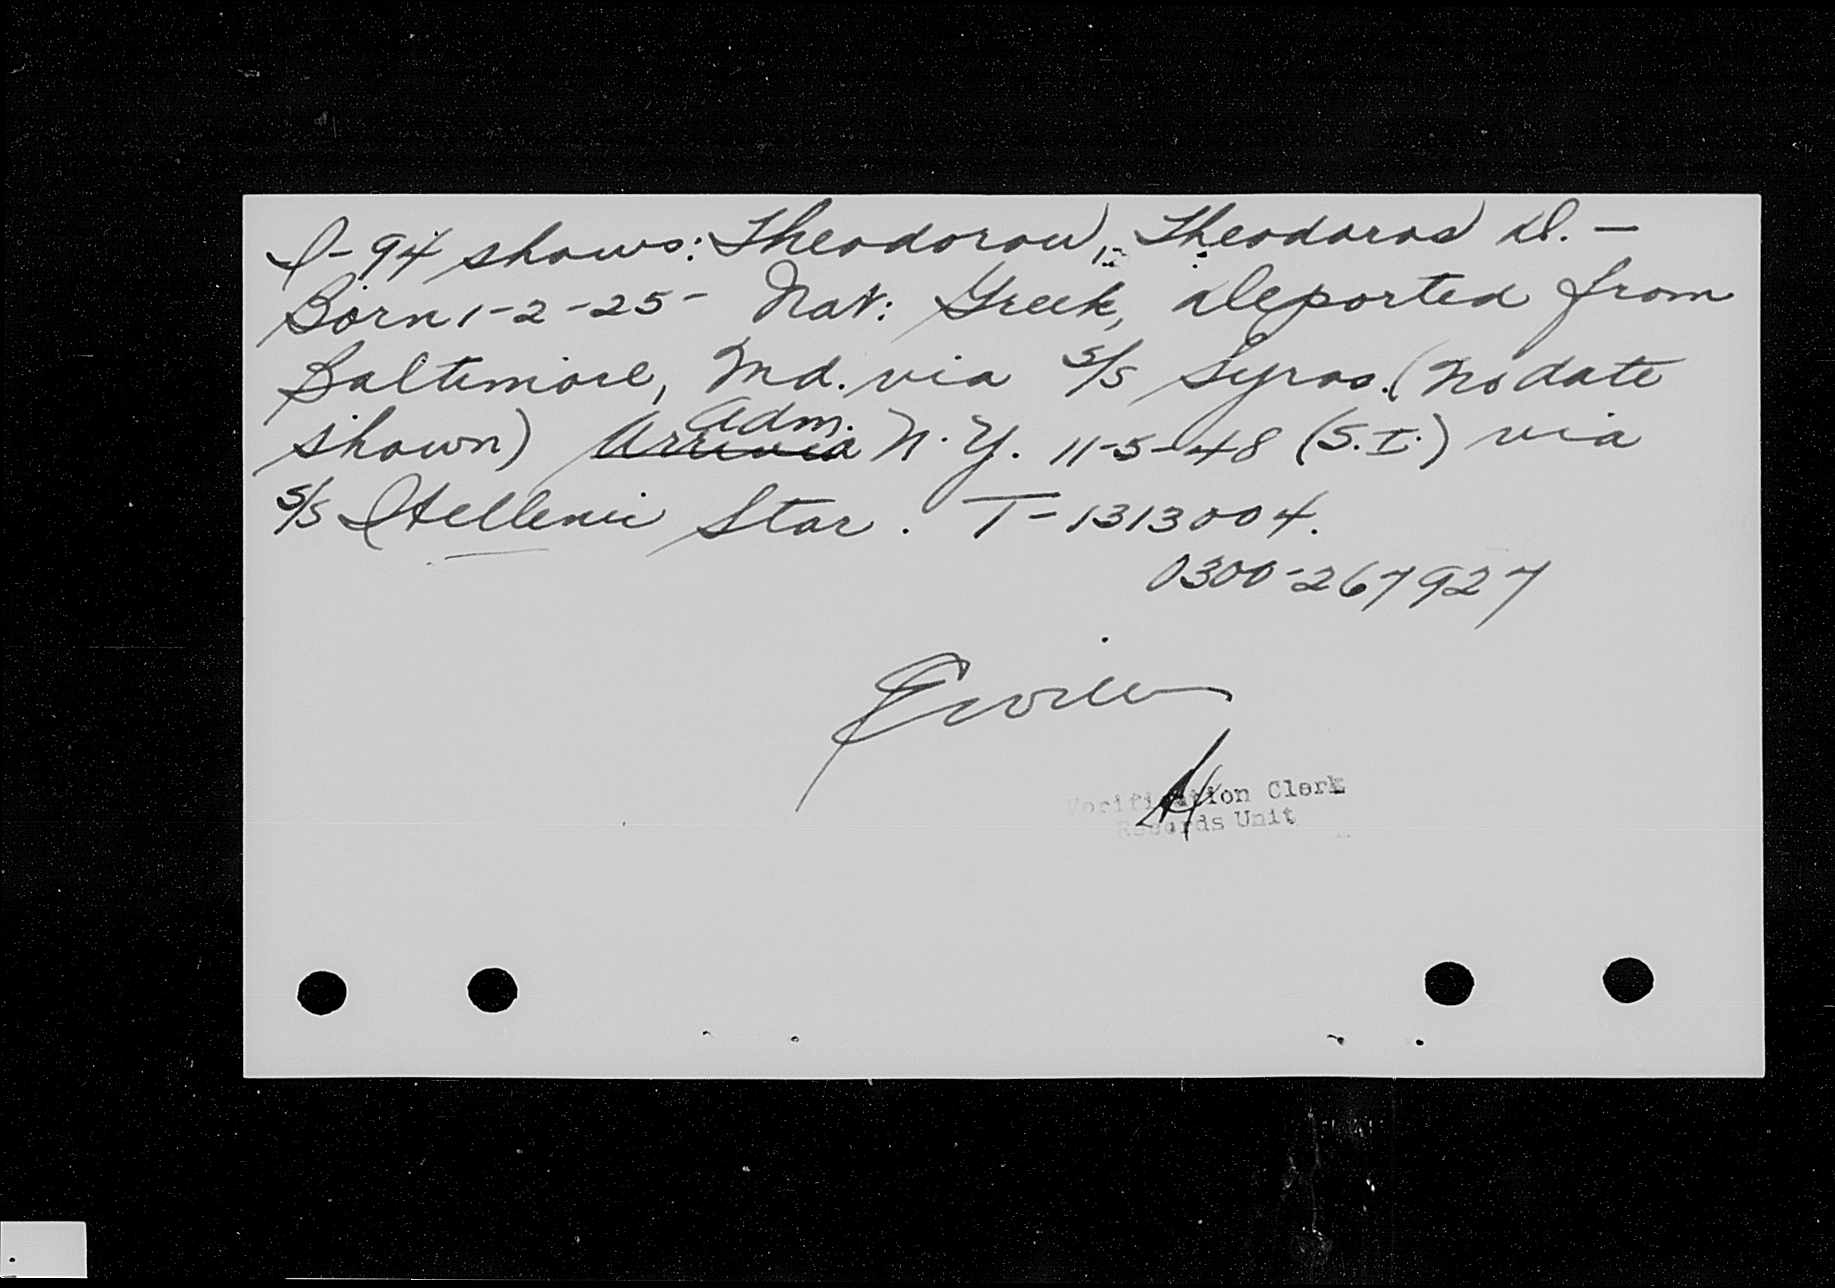 I-94 shows: Theodorou, Theodoros D. —
Born 1-2-25 - Nat: Greek, Deported from
Baltimore, Md. via S/S Syros. (No date
shown) Arrived adm. N.Y. 11-5-48 (S.I.) via
S/S Hellenic Star. T-1313004.
0300-267927
Verification Clerk
Records Unit